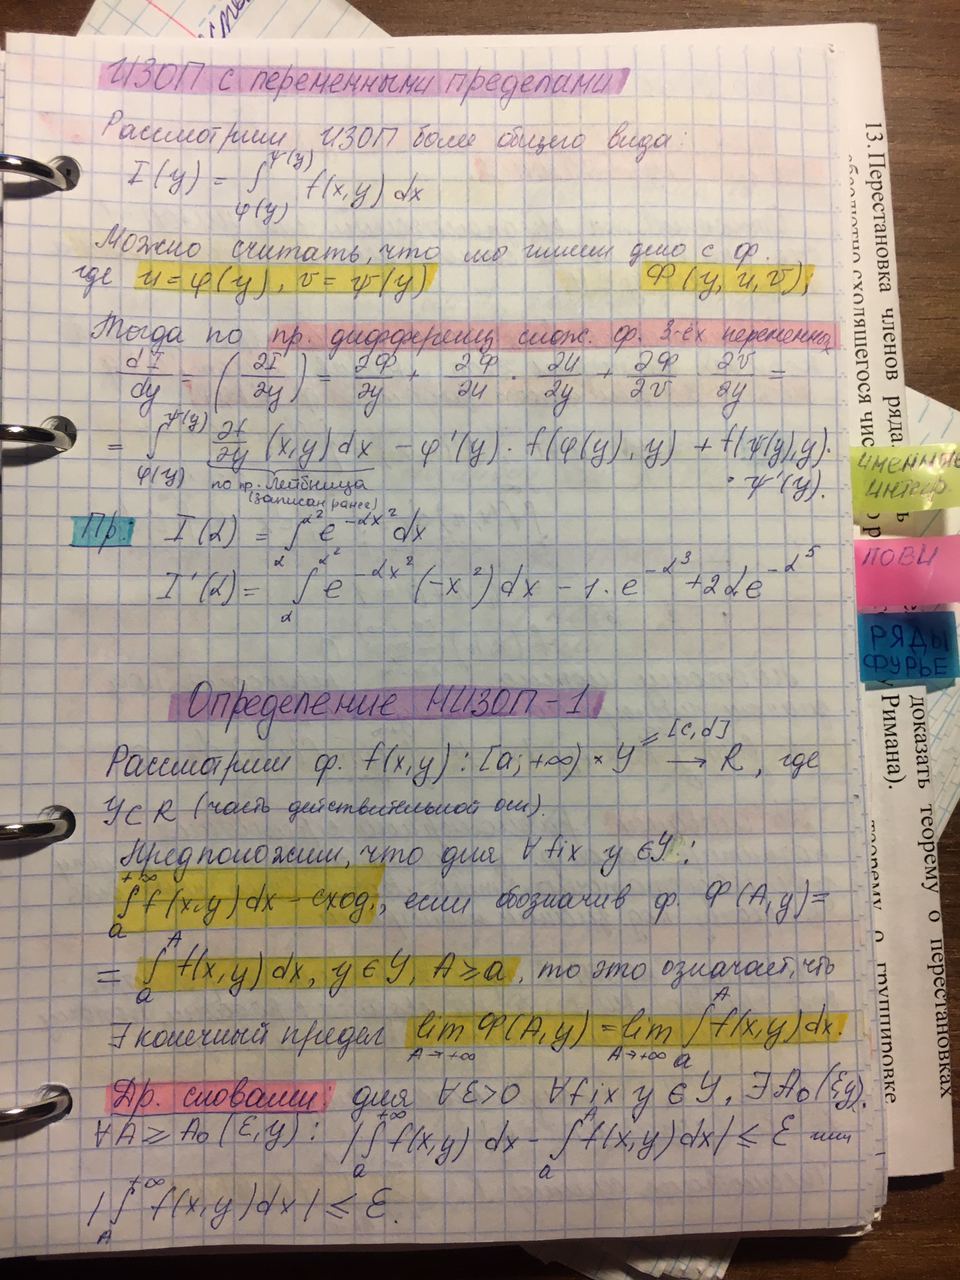 ИЗОП с переменными пределами
Рассмотрим ИЗОП более общего вида:
I(y) = ∫_{φ(y)}^{ψ(y)} f(x,y) dx
Можно считать, что мы имеем дело с ф.
где u = φ(y), v = ψ(y) Φ(y, u, v),
Тогда по пр. дифференц слож. ф. 3-ёх переменных
dI/dy = (∂I/∂y) = ∂Φ/∂y + ∂Φ/∂u · ∂u/∂y + ∂Φ/∂v · ∂v/∂y =
= ∫_{φ(y)}^{ψ(y)} ∂f/∂y (x,y) dx − φ'(y) · f(φ(y), y) + f(ψ(y), y) ·
по пр. Лейбница
(записан ранее)
· ψ'(y).
Пр: I(α) = ∫_{α}^{α²} e^{−αx²} dx
I'(α) = ∫_{α}^{α²} e^{−αx²} (−x²) dx − 1 · e^{−α³} + 2αe^{−α⁵}
Определение НИЗОП-1
Рассмотрим ф. f(x,y) : [a; +∞) × Y → R, где
= [c,d]
Y ⊂ R (часть действительной оси).
Предположим, что для ∀ fix y ∈ Y :
∫_{a}^{+∞} f(x,y) dx – сход., если обозначив ф. Φ(A, y) =
= ∫_{a}^{A} f(x,y) dx, y ∈ Y, A ≥ a, то это означает, что
∃ конечный предел lim_{A→+∞} Φ(A, y) = lim_{A→+∞} ∫_{a}^{A} f(x,y) dx.
Др. словами: для ∀ε>0 ∀ fix y ∈ Y, ∃A₀(ε,y).
∀A ≥ A₀(ε,y) : |∫_{a}^{+∞} f(x,y) dx − ∫_{a}^{A} f(x,y) dx| ≤ ε или
|∫_{A}^{+∞} f(x,y) dx| ≤ ε.
ПОВИ
РЯДЫ
ФУРЬЕ
13. Перестановка членов ряда.
абсолютно сходящегося чис
доказать теорему о перестановках
Римана).
теорему о группировке